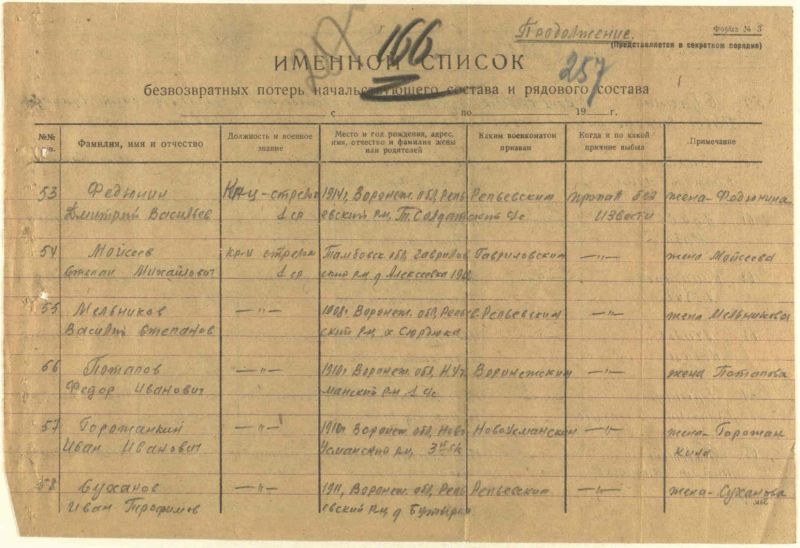 Продолжение.
Форма № 3
(Представляется в секретном порядке)
166
257
ИМЕННОЙ СПИСОК
безвозвратных потерь начальствующего состава и рядового состава
с по 19 г.
№№ Фамилия, имя и отчество Должность и военное звание Место и год рождения, адрес, имя, отчество и фамилия жены или родителей Каким военкоматом призван Когда и по какой причине выбыл Примечание
53 Федюнин Кр-ц-стрелок 1914г, Воронеж. обл, Репь- Репьевским пропал без жена-Федюнина
Дмитрий Васильев 1 ср евский р-н, известии
54 Мойсеев кр-ц стрелок Тамбовск обл, Гаврилов Гавриловским —"— жена Мойсеева
Степан Михайлович 1 ср ский р-н д Алексеевка
55 Мельников —"— Воронеж. обл, Репье Репьевским —"— жена Мельникова
Василий Степанов ский р-н,
56 Потапов —"— 1910г Воронеж. обл, Н.Ус- Воронежским —"— жена Потапова
Федор Иванович манский р-н
57 Горожанкин —"— 1910г Воронеж обл, Ново Новоусманским —"— жена-Горожан
Иван Иванович Усманский р-н, кина
58 Суханов —"— 1911, Воронеж. обл, Репь Репьевским —"— жена-Суханова
Иван Трофимов евский р-н д Бутырки